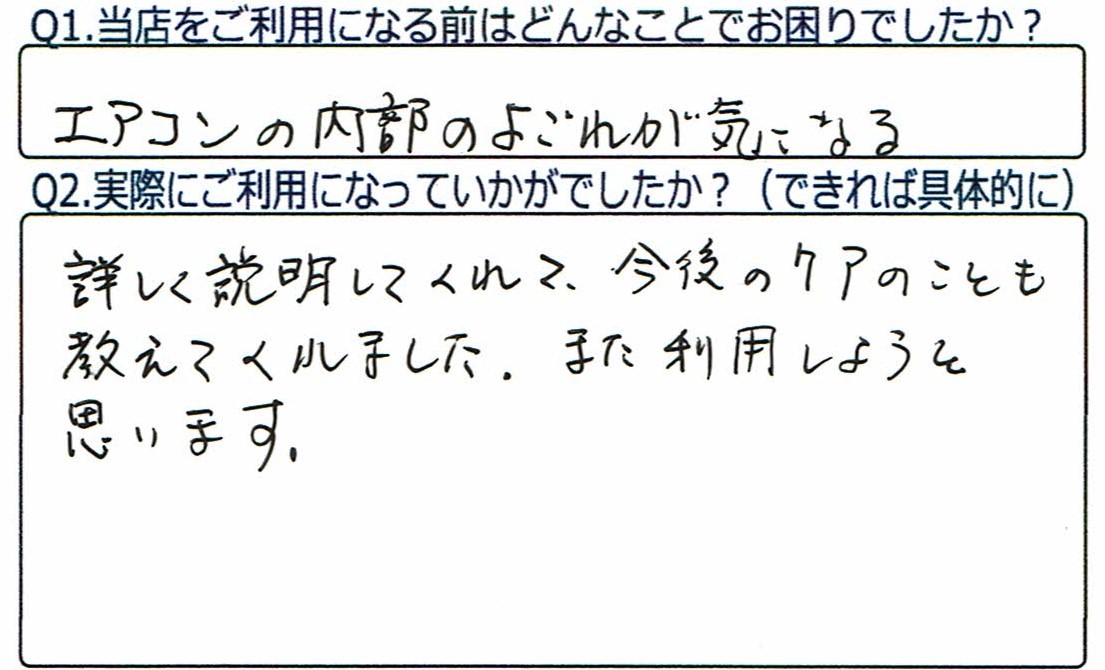 Q1.当店をご利用になる前はどんなことでお困りでしたか？
エアコンの内部のよごれが気になる
Q2.実際にご利用になっていかがでしたか？（できれば具体的に）
詳しく説明してくれて、今後のケアのことも
教えてくれました。また利用しようと
思います。